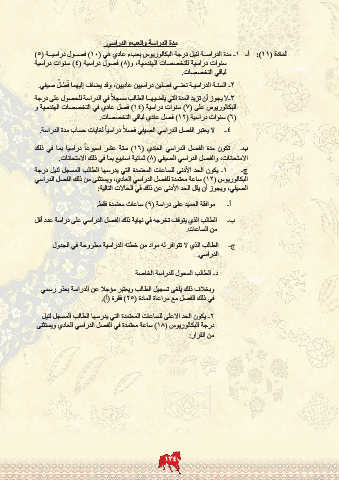 مدة الدراسة والعبء الدراسي
المادة (١١): أ- ١- مدة الدراسة لنيل درجة البكالوريوس بعبء عادي هي (١٠) فصول دراسية (٥)
سنوات دراسية للتخصصات الهندسية، و(٨) فصول دراسية (٤) سنوات دراسية
لباقي التخصصات.
٢- السنة الدراسية تعني فصلين دراسيين عاديين، وقد يضاف إليهما فصل صيفي.
٣- لا يجوز أن تزيد المدة التي يقضيها الطالب مسجلاً في الدراسة للحصول على درجة
البكالوريوس على (٧) سنوات دراسية (١٤) فصل عادي في التخصصات الهندسية و
(٦) سنوات دراسية (١٢) فصل عادي لباقي التخصصات.
٤- لا يعتبر الفصل الدراسي الصيفي فصلاً دراسياً لغايات حساب مدة الدراسة.
ب- تكون مدة الفصل الدراسي العادي (١٦) ستة عشر اسبوعاً دراسياً بما في ذلك
الامتحانات، والفصل الدراسي الصيفي (٨) ثمانية اسابيع بما في ذلك الامتحانات.
ج- ١- يكون الحد الأدنى للساعات المعتمدة التي يدرسها الطالب المسجل لنيل درجة
البكالوريوس (١٢) ساعة معتمدة للفصل الدراسي العادي، ويستثنى من ذلك الفصل الدراسي
الصيفي، ويجوز أن يقل الحد الأدنى عن ذلك في الحالات التالية:
أ- موافقة العميد على دراسة (٩) ساعات معتمدة فقط.
ب- الطالب الذي يتوقف تخرجه في نهاية ذلك الفصل الدراسي على دراسة عدد أقل
من الساعات.
ج- الطالب الذي لا تتوافر له مواد من خطته الدراسية مطروحة في الجدول
الدراسي.
د- الطالب المحول للدراسة الخاصة
وبخلاف ذلك يلغى تسجيل الطالب ويعتبر مؤجلا عن الدراسة بعذر رسمي
في ذلك الفصل مع مراعاة المادة (٢٥) فقرة (أ).
٢- يكون الحد الاعلى للساعات المعتمدة التي يدرسها الطالب المسجل لنيل
درجة البكالوريوس (١٨) ساعة معتمدة في الفصل الدراسي العادي ويستثنى
من القرار:
١٢٤